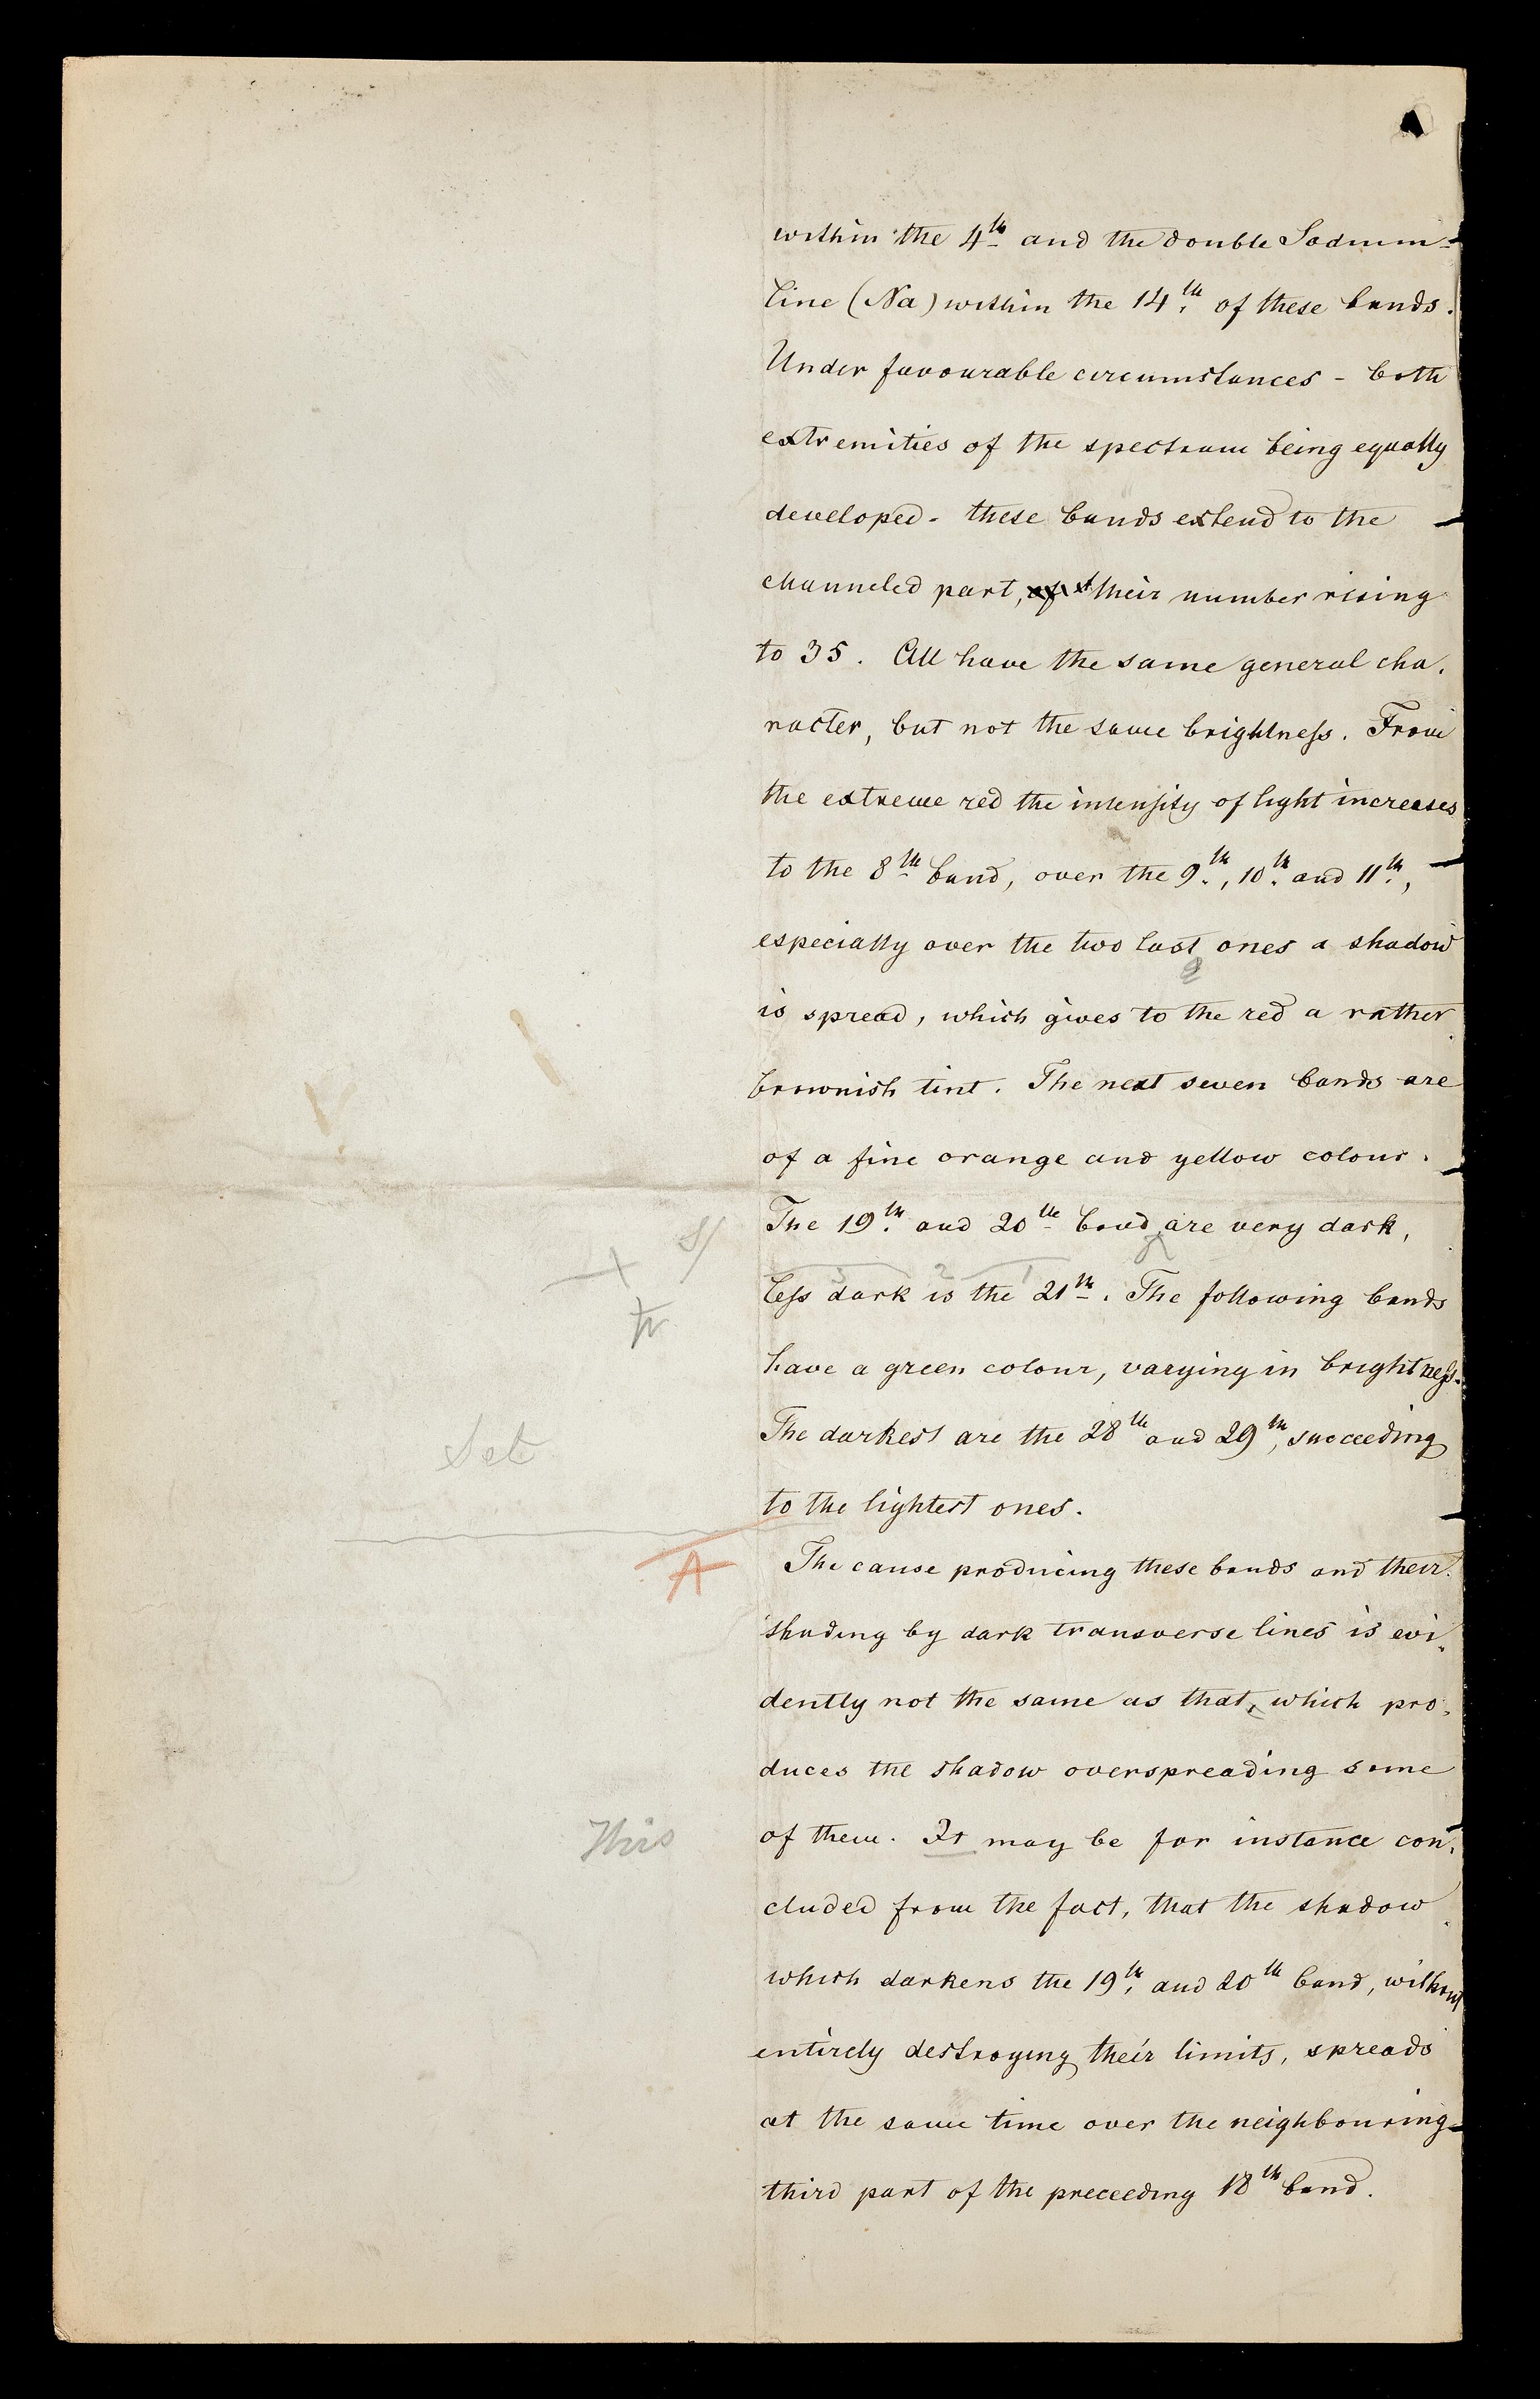 within the 4th and the double Sodium-
line (Na) within the 14th of these bands.
Under favourable circumstances - both
extremities of the spectrum being equally
developed - these bands extend to the
channeled part, of their number rising
to 35. All have the same general cha-
racter, but not the same brightneſs. From
the extreme red the intenſity of light increases
to the 8th band, over the 9th, 10th and 11th,
especially over the two last ones a shadow
is spread, which gives to the red a rather
brownish tint. The next seven bands are
of a fine orange and yellow colour.
s/ The 19th and 20th band are very dark,
tr leſs dark is the 21th. The following bands
3 2 1
have a green colour, varying in brightneſs.
The darkest are the 28th and 29th, succeeding
Set
to the lightest ones.
A The cause producing these bands and their
shading by dark transverse lines is evi-
dently not the same as that, which pro-
duces the shadow overspreading some
This of them. It may be for instance con-
cluded from the fact, that the shadow
which darkens the 19th and 20th band, without
entirely destroying their limits, spreads
at the same time over the neighbouring
third part of the preceeding 18th band.